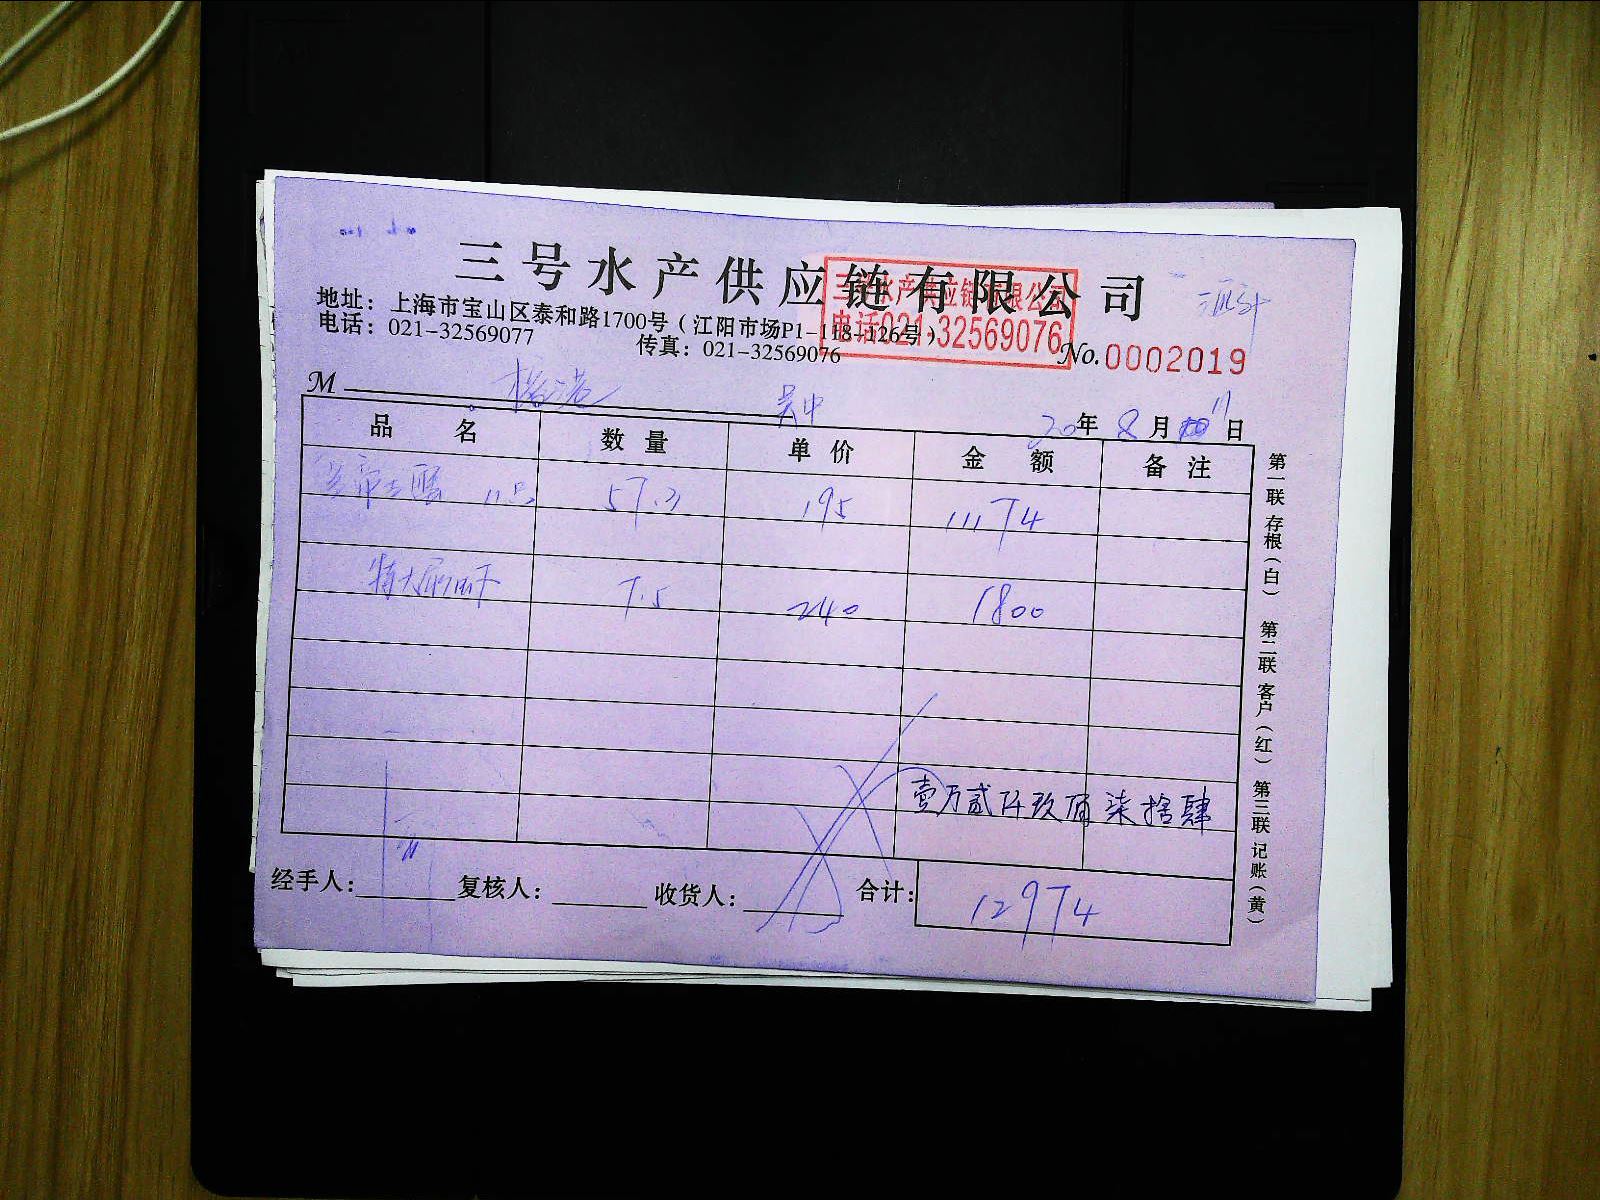 三号水产供应链有限公司
三号水产供应链有限公司
电话021-32569076
地址：上海市宝山区泰和路1700号（江阳市场P1-118-126号）
电话：021-32569077 传真：021-32569076
No.0002019
M
吴中
20年8月11日
品名 数量 单价 金额 备注
11只 57.3 195 11174
特大 7.5 240 1800
壹万贰仟玖佰柒拾肆
经手人： 复核人： 收货人： 合计：12974
第一联 存根（白） 第二联 客户（红） 第三联 记账（黄）